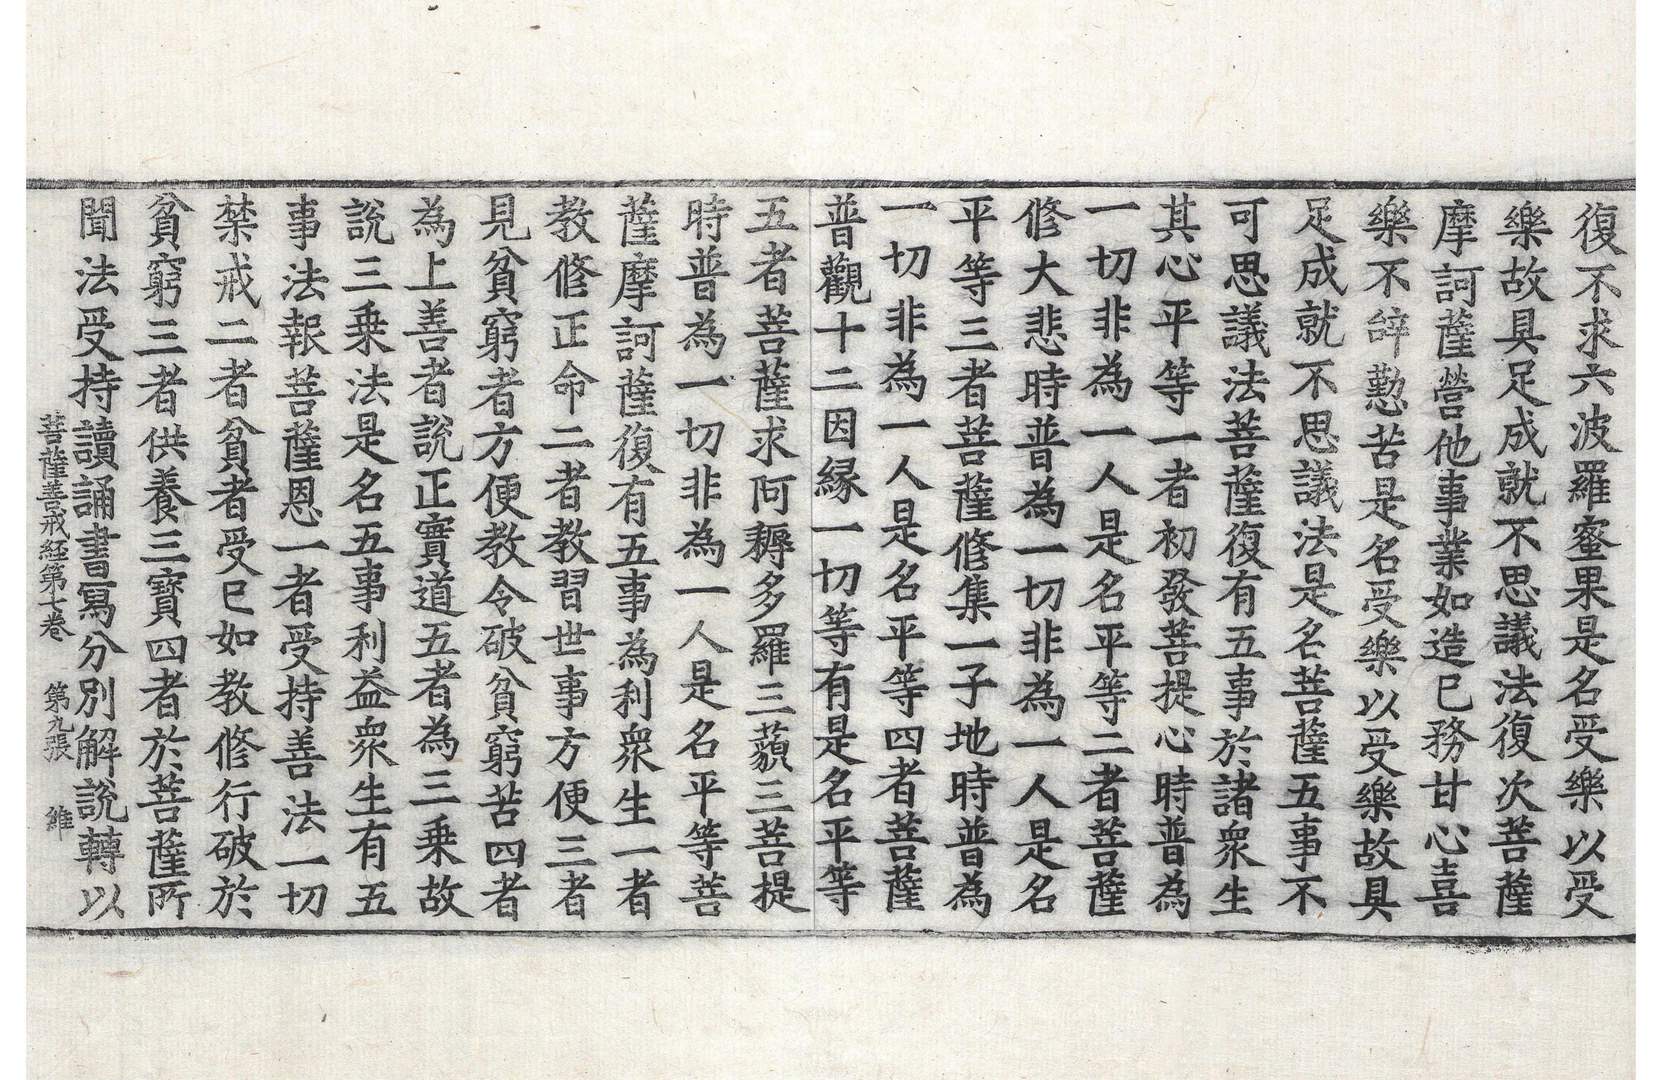 復不求六波羅蜜果是名受樂以受
樂故具足成就不思議法復次菩薩
摩訶薩營他事業如造已務甘心喜
樂不辝懃苦是名受樂以受樂故具
足成就不思議法是名菩薩五事不
可思議法菩薩復有五事於諸衆生
其心平等一者初發菩提心時普為
一切非為一人是名平等二者菩薩
修大悲時普為一切非為一人是名
平等三者菩薩修集一子地時普為
一切非為一人是名平等四者菩薩
普觀十二因縁一切等有是名平等
五者菩薩求阿耨多羅三藐三菩提
時普為一切非為一人是名平等菩
薩摩訶薩復有五事為利衆生一者
教修正命二者教習世事方便三者
見貧窮者方便教令破貧窮苦四者
為上善者說正實道五者為三乗故
說三乗法是名五事利益衆生有五
事法報菩薩恩一者受持善法一切
禁戒二者貧者受已如教修行破於
貧窮三者供養三寳四者於菩薩所
聞法受持讀誦書寫分別解說轉以
菩薩善戒経第七卷 第九張 維